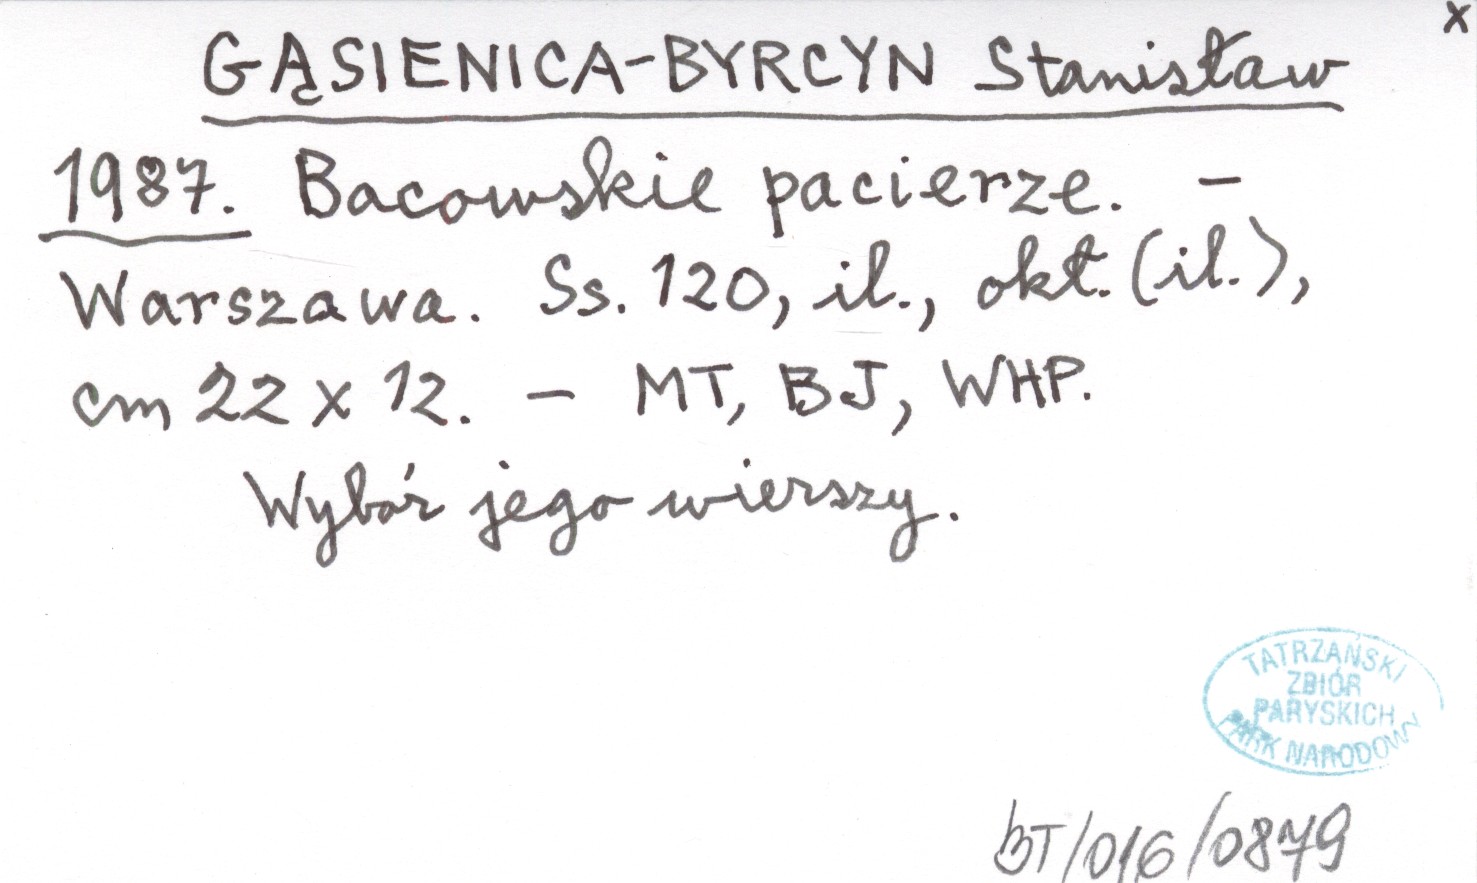 x
GĄSIENICA-BYRCYN Stanisław
1987. Bacowskie pacierze. –
Warszawa. Ss. 120, il., okł. (il.),
cm 22 x 12. – MT, BJ, WHP.
Wybór jego wierszy.
TATRZAŃSKI
ZBIÓR
PARYSKICH
PARK NARODOWY
BT/016/0879